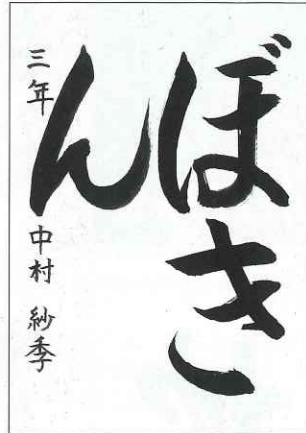 ぼき
ん
三年 中村 紗季